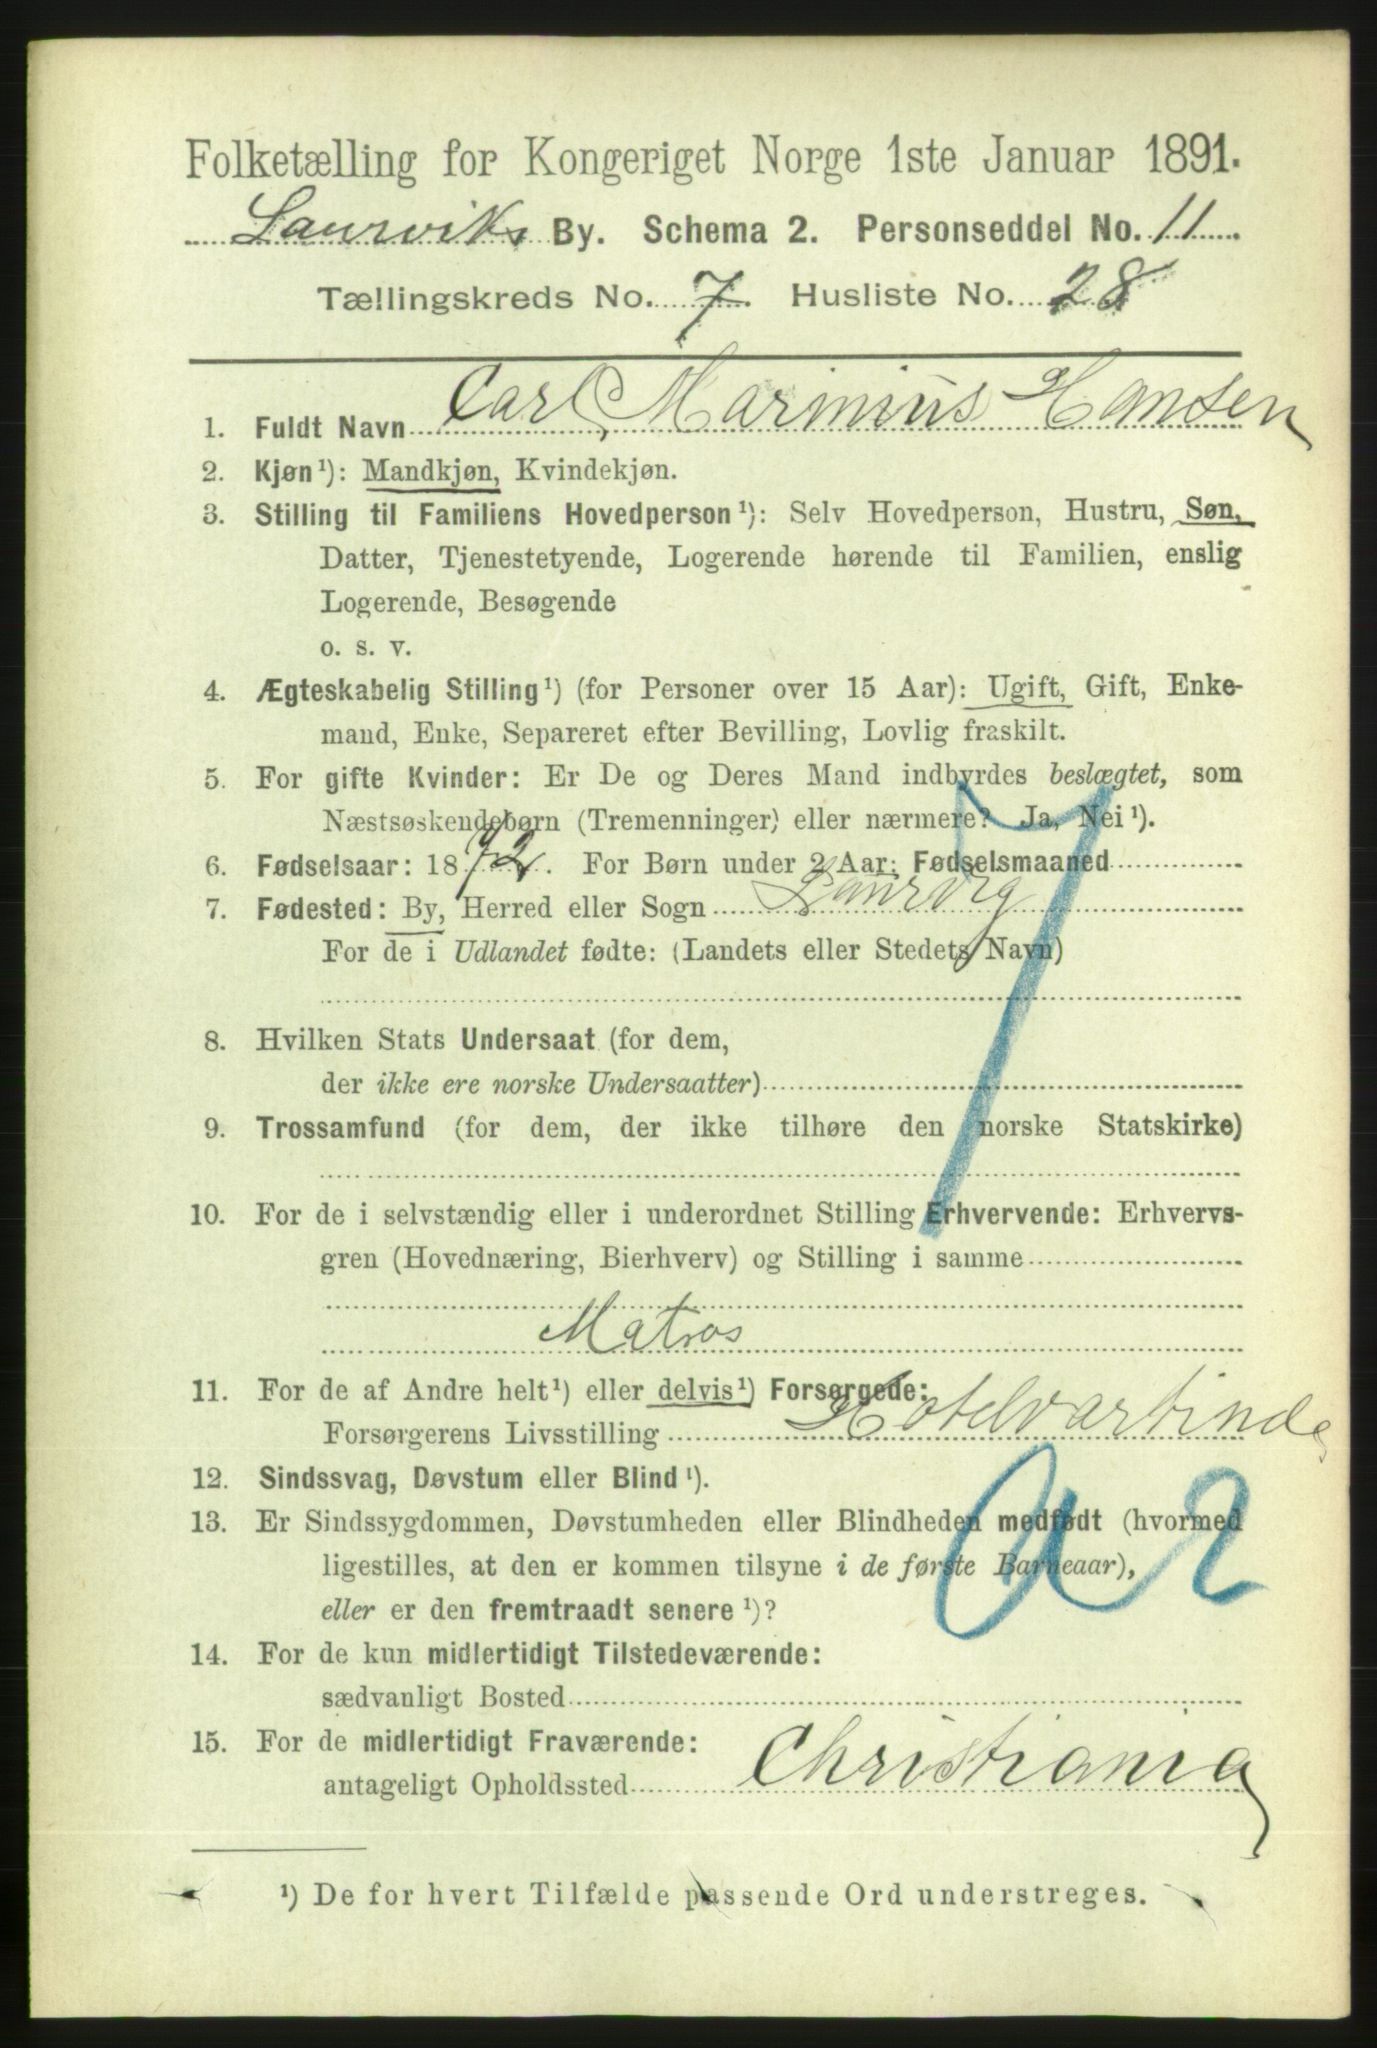 Folketælling for Kongeriget Norge 1ste Januar 1891.
Laurviks By. Schema 2. Personseddel No. 11
Tællingskreds No. 7 Husliste No. 28
1. Fuldt Navn Carl Marinius Hansen
2. Kjøn¹): Mandkjøn, Kvindekjøn.
3. Stilling til Familiens Hovedperson¹): Selv Hovedperson, Hustru, Søn,
Datter, Tjenestetyende, Logerende hørende til Familien, enslig
Logerende, Besøgende
o. s. v.
4. Ægteskabelig Stilling¹) (for Personer over 15 Aar): Ugift, Gift, Enke-
mand, Enke, Separeret efter Bevilling, Lovlig fraskilt.
5. For gifte Kvinder: Er De og Deres Mand indbyrdes beslægtet, som
Næstsøskendebørn (Tremenninger) eller nærmere? Ja, Nei¹).
6. Fødselsaar: 1872. For Børn under 2 Aar: Fødselsmaaned
7. Fødested: By, Herred eller Sogn Laurvig
For de i Udlandet fødte: (Landets eller Stedets Navn)
8. Hvilken Stats Undersaat (for dem,
der ikke ere norske Undersaatter)
9. Trossamfund (for dem, der ikke tilhøre den norske Statskirke)
10. For de i selvstændig eller i underordnet Stilling Erhvervende: Erhvervs-
gren (Hovednæring, Bierhverv) og Stilling i samme
Matros
11. For de af Andre helt¹) eller delvis¹) Forsørgede:
Forsørgerens Livsstilling Hotelvartinde
12. Sindssvag, Døvstum eller Blind¹).
13. Er Sindssygdommen, Døvstumheden eller Blindheden medfødt (hvormed
ligestilles, at den er kommen tilsyne i de første Barneaar),
eller er den fremtraadt senere¹)?
14. For de kun midlertidigt Tilstedeværende:
sædvanligt Bosted
15. For de midlertidigt Fraværende:
antageligt Opholdssted Christiania
¹) De for hvert Tilfælde passende Ord understreges.